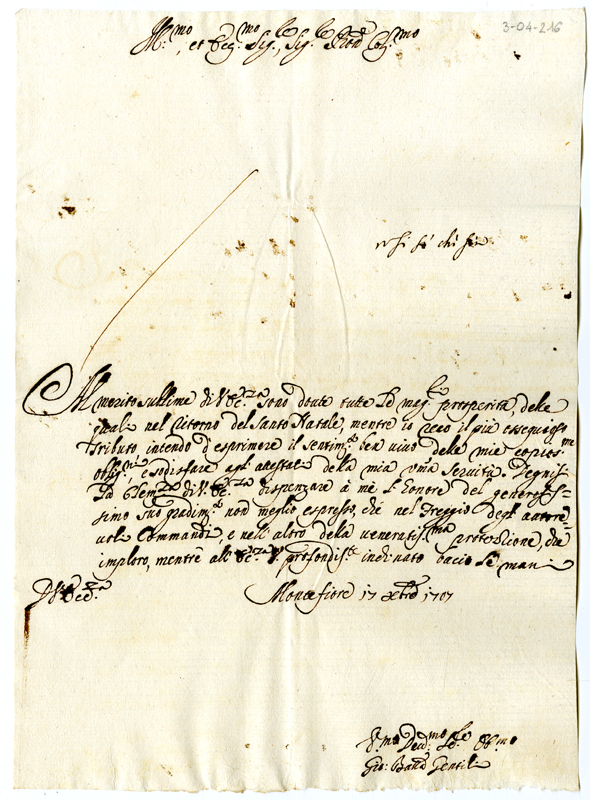 3-04-216
Ill.mo et Ecc.mo Sig.re Sig.re Pron Col.mo
si sà chi sia
Al merito sublime di V. Ecc.za sono douute tutte le mag.ri prosperità, delle
quali nel ritorno del Santo Natale, mentre io reco il più ossequioso
tributo, intendo d'esprimere il sentim.to ben uiuo delle mie copios.me
oblig.ni, e sodisfare agl'attestati della mia um.a seruitù. Degnisi
la Clem.za di V. Ecc.za dispenzare à mè l'honore del generosis=
simo suo gradim.to non meglio espresso, chè nel freggio degl'autore=
uoli Commandi, e nell'altro della ueneratis.ma protezzione, che
imploro, mentre all'Ecc.za V. profondis.te inclinato bacio le mani
D V. Ecc.za
Montefiore 17 Xbre 1707
V.mo Deu.mo Se.re Ob.mo
Gio: Batta Gentili